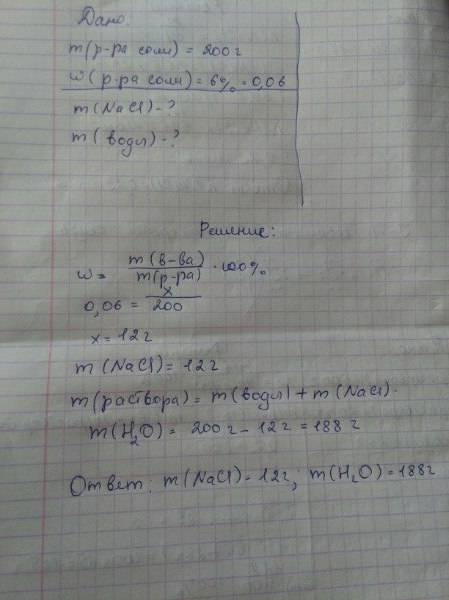 Дано:
m(р-ра соли) = 200 г
w(р-ра соли) = 6% = 0,06
m(NaCl) - ?
m(воды) - ?
Решение:
w = m(в-ва) / m(р-ра) · 100%
0,06 = x / 200
x = 12 г
m(NaCl) = 12 г
m(раствора) = m(воды) + m(NaCl).
m(H₂O) = 200 г - 12 г = 188 г
Ответ: m(NaCl) = 12 г; m(H₂O) = 188 г